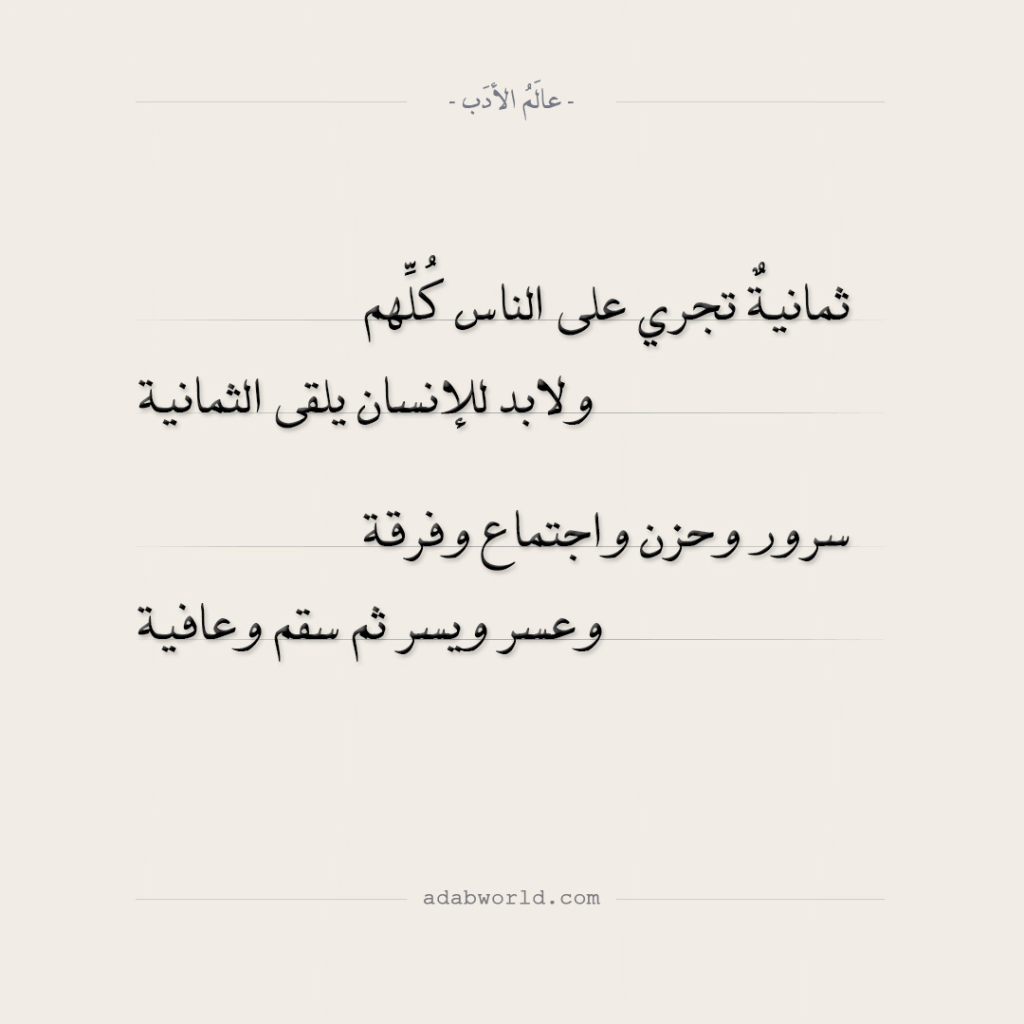 - عالَمُ الأدَب -
ثمانيةٌ تجري على الناس كُلِّهم
ولابد للإنسان يلقى الثمانية
سرور وحزن واجتماع وفرقة
وعسر ويسر ثم سقم وعافية
adabworld.com